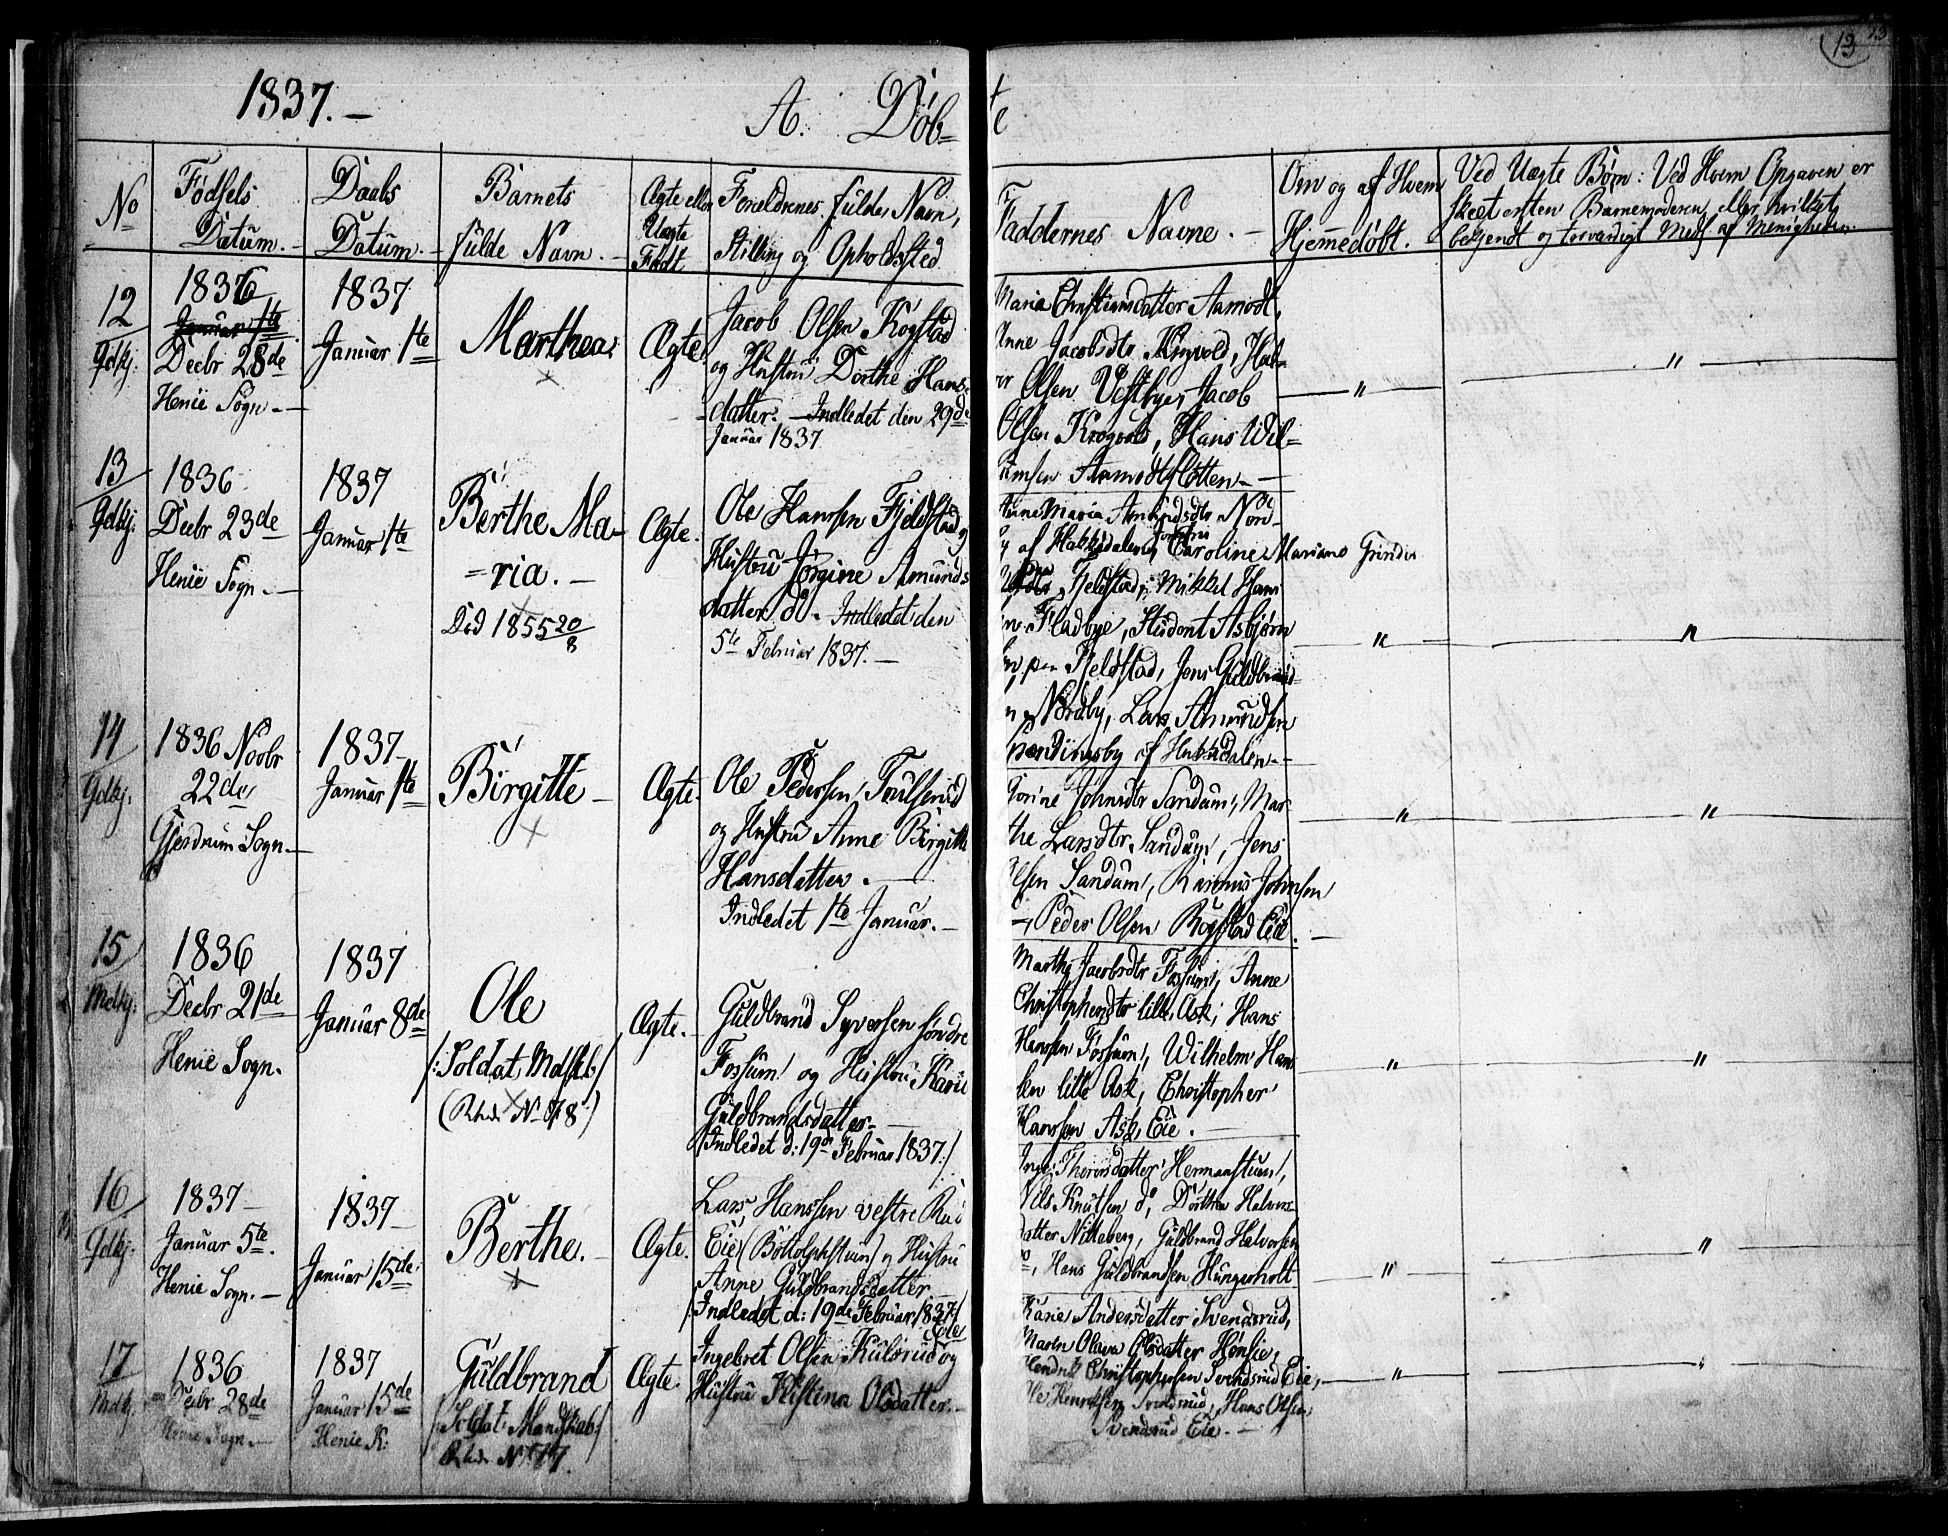 13
1837.-
A. Døb-
te
No
Fødsels
Datum.-
Daabs
Datum.-
Barnets
fulde Navn.-
Ægte eller
Uægte
Født
Forældrenes fulde Navn,
Stilling og Opholdssted.
Faddernes Navne.-
Om og af Hvem
Hjemmedøbt.-
Ved Uægte Børn: Ved Hvem Opgaven er
skeet enten Barnemoderen eller hvilket
bekjendt og troværdigt Medl. af Menigheden.
12
Gdkj.
1836
Januar 1te
Decbr 28de
Henie Sogn.-
1837
Januar 1te
Marthea
Ægte
Jacob Olsen Kogstad
og Hustru Dorthe Hans-
datter.- Indledet den 29de
Januar 1837
Maria Christiansdatter Aamodt,
Anne Jacobsdtr Krogvold, Hal-
Olsen Vestbye, Jacob
Olsen Krogvold, Hans Wil-
Aamodtslotten.-
" "
13
Gdkj.
1836
Decbr 23de
Henie Sogn.-
1837
Januar 1te
Berthe Ma-
=ria.-
Død 1855 20/8
Ægte.
Ole Hanssen Fjeldstad og
Hustru Jørgine Amunds
datter do. Indledet den
5te Februar 1837.-
Anne Maria Amundsdtr Nord-
by af Hakkedalen, Caroline Mariane
Fjeldstad, Mikkel Hans
Fladbye, Student Asbjørn
Fjeldstad, Jens Guldbrand-
Nordby, Lars Amundsen
af Hakkedalen.-
" "
14
Gdkj.
1836 Novbr
22de
Gjerdrum Sogn.-
1837
Januar 1te
Birgitte-
Ægte.
Ole Pedersen
og Hustru Anne Birgitte
Hansdatter.-
Indledet 1te Januar.-
Johnsdtr Sandum, Mar-
the Larsdtr Sandum, Jens
Olsen Sandum, Rasmus Johnsen
Peder Olsen Rogstad Eie.-
" "
15
Mdkj.
1836
Decbr 21de
Henie Sogn.
1837
Januar 8de
Ole
/:Soldat Mdskb/
(Rhds No 678)
Ægte.
Guldbrand Syversen søndre
Fossum og Hustru Karie
Guldbrandsdatter.-
/Indledet d: 19de Februar 1837:/
Marthe Jacobsdtr Fossum, Anne
Christophersdtr lille Ask, Hans
Hanssen Fossum, Wilhelm Hans
sen lille Ask, Christopher
Hanssen Ask Eie.-
" "
16
Gdkj.
1837-
Januar 5te.
Henie Sogn.-
1837-
Januar 15de
Berthe.-
Ægte.
Lars Hanssen vestre
Eie og Hustru
Anne Guldbrandsdatter
/Indledet d: 19de Februar 1837:/
Hermanstuen,
Nils Knutsen do, Dorthea Halvors
datter Nitteberg, Guldbrand Halvorsen
do, Hans Guldbrandsen Hungerholt
" "
17
Mdkj.
1836
Decbr 28de
Henie Sogn.-
1837
Januar 15de
Henie K:
Guldbrand
/Soldat Mandskab/
Rhds No 77.
Ægte.
Ingebret Olsen Kulsrud Eie og
Hustru Kistina Olsdatter.-
Karie Andersdatter Svendsrud,
Maren Olava Olsdatter Hønsie,
Hendrik Christophersen Svendsrud Eie,
Ole Svendsrud, Hans Olsen
Svendsrud Eie.-
" "